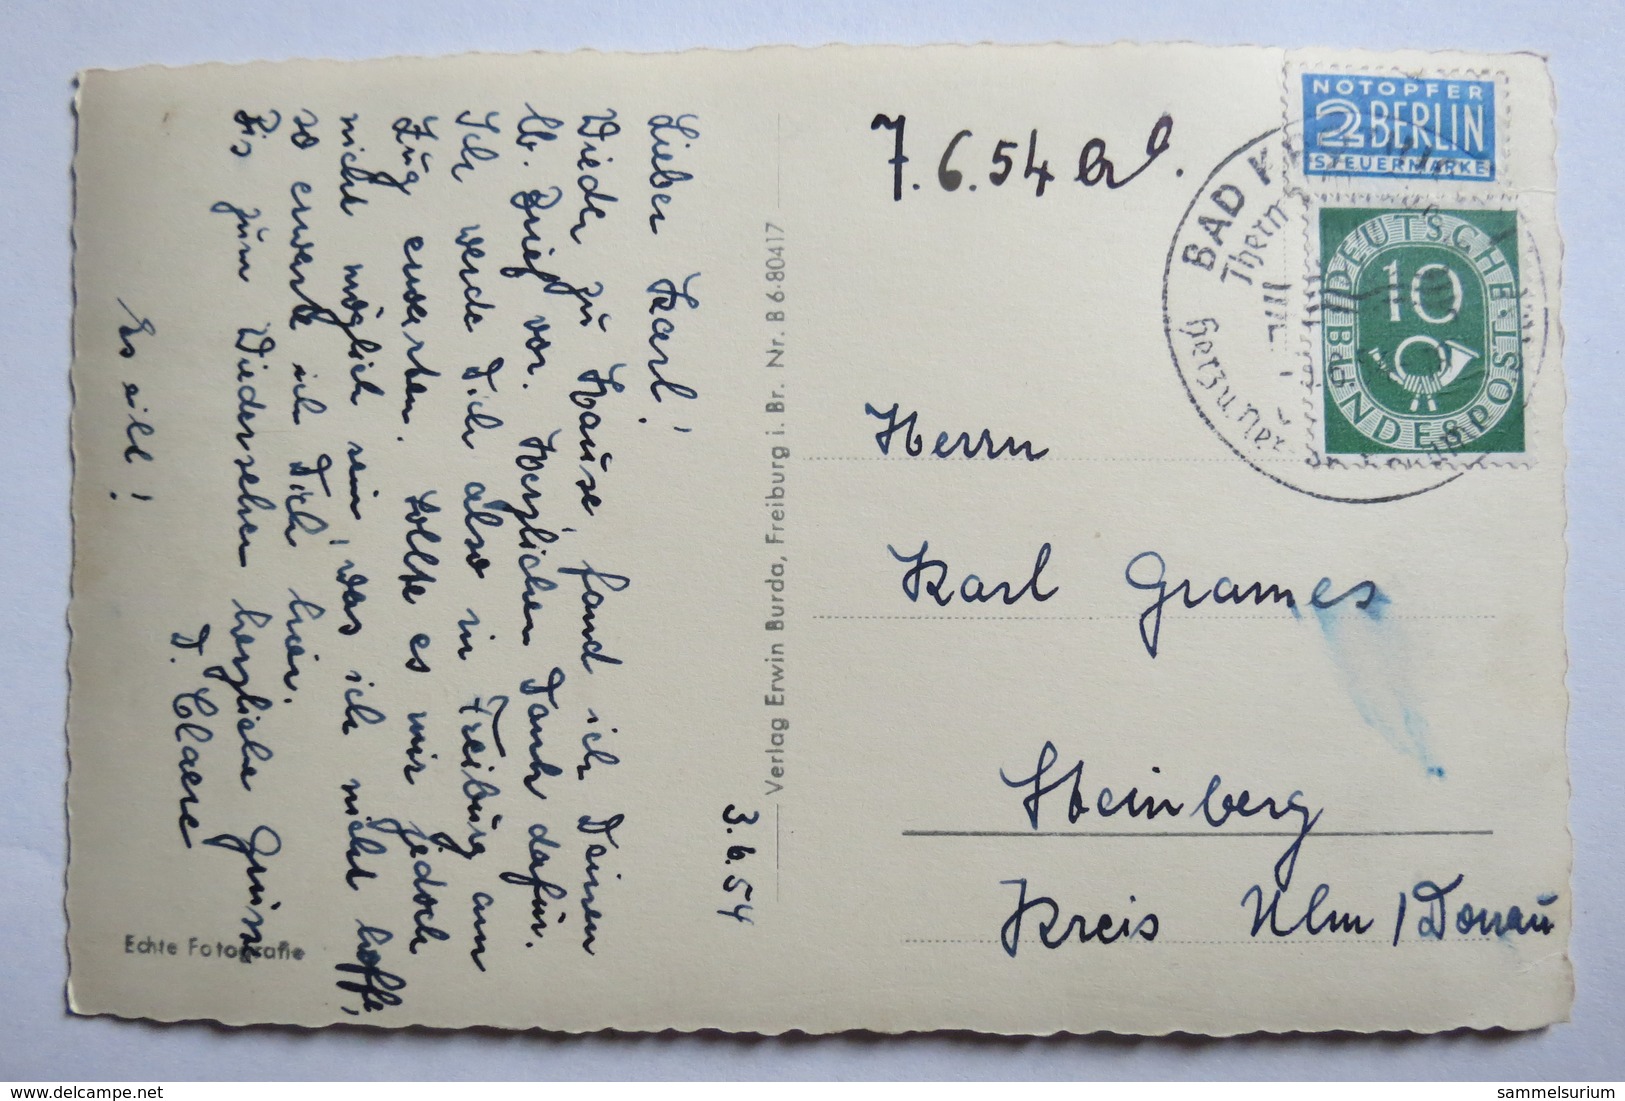 Lieber Karl!
Wieder zu Hause, fand ich Deinen
lb. Brief vor. Herzlichen Dank dafür.
Ich werde Dich also in Freiburg am
Zug erwarten. Sollte es mir jedoch
nicht möglich sein, was ich nicht hoffe,
so erwarte ich Dich hier.
Bis zum Wiedersehen herzliche Grüsse
D. Claere
Es eilt!
Echte Fotografie
3.6.54
Verlag Erwin Burda, Freiburg i. Br. Nr. B 6-80417
7.6.54
NOTOPFER
2 BERLIN
STEUERMARKE
DEUTSCHE BUNDESPOST
10
BAD
Herz u.
Herrn
Karl Grames
Steinberg
Kreis Ulm / Donau
sammelsurium